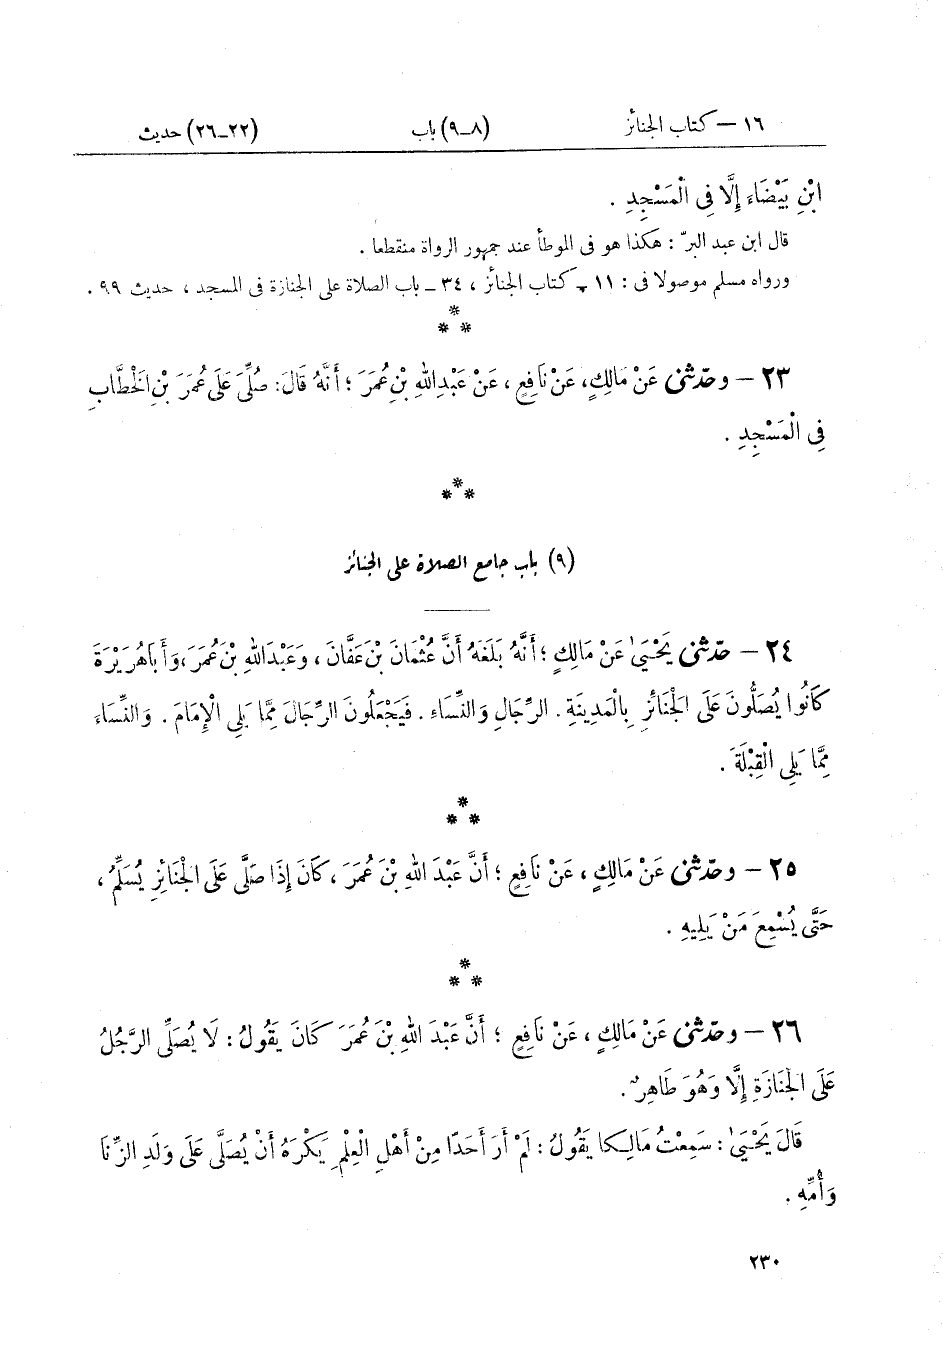 ١٦ — كتاب الجنائز (٨ـ٩) باب (٢٢ـ٢٦) حديث
ابْنِ بَيْضَاءَ إِلَّا فِى الْمَسْجِدِ .
قال ابن عبد البرّ : هكذا هو فى الموطأ عند جمهور الرواة منقطعا .
ورواه مسلم موصولا فى : ١١ ـ كتاب الجنائز ، ٣٤ ـ باب الصلاة على الجنازة فى المسجد ، حديث ٩٩ .
***
٢٣ — وحدّثنى عَنْ مَالِكٍ، عَنْ نَافِعٍ ، عَنْ عَبْدِ اللهِ بْنِ عُمَرَ ؛ أَنَّهُ قَالَ: صُلِّىَ عَلَى عُمَرَ بْنِ الْخَطَّابِ
فِى الْمَسْجِدِ .
***
(٩) باب جامع الصلاة على الجنائز
٢٤ — حدّثنى يَحْيَىٰ عَنْ مَالِكٍ ؛ أَنَّهُ بَلَغَهُ أَنَّ عُثْمَانَ بْنَ عَفَّانَ ، وَعَبْدَ اللهِ بْنَ عُمَرَ، وَأَبَا هُرَيْرَةَ
كَانُوا يُصَلُّونَ عَلَى الْجَنَائِزِ بِالْمَدِينَةِ . الرِّجَالِ وَالنِّسَاءِ . فَيَجْعَلُونَ الرِّجَالَ مِمَّا يَلِى الْإِمَامَ . وَالنِّسَاءَ
مِمَّا يَلِى الْقِبْلَةَ .
***
٢٥ — وحدّثنى عَنْ مَالِكٍ ، عَنْ نَافِعٍ ؛ أَنَّ عَبْدَ اللهِ بْنَ عُمَرَ ، كَانَ إِذَا صَلَّى عَلَى الْجَنَائِزِ يُسَلِّمُ ،
حَتَّى يُسْمِعَ مَنْ يَلِيهِ .
***
٢٦ — وحدّثنى عَنْ مَالِكٍ ، عَنْ نَافِعٍ ؛ أَنَّ عَبْدَ اللهِ بْنَ عُمَرَ كَانَ يَقُولُ : لَا يُصَلِّى الرَّجُلُ
عَلَى الْجَنَازَةِ إِلَّا وَهُوَ طَاهِرٌ .
قَالَ يَحْيَىٰ : سَمِعْتُ مَالِكًا يَقُولُ : لَمْ أَرَ أَحَدًا مِنْ أَهْلِ الْعِلْمِ يَكْرَهُ أَنْ يُصَلَّى عَلَى وَلَدِ الزِّنَا
وَأُمِّهِ .
٢٣٠